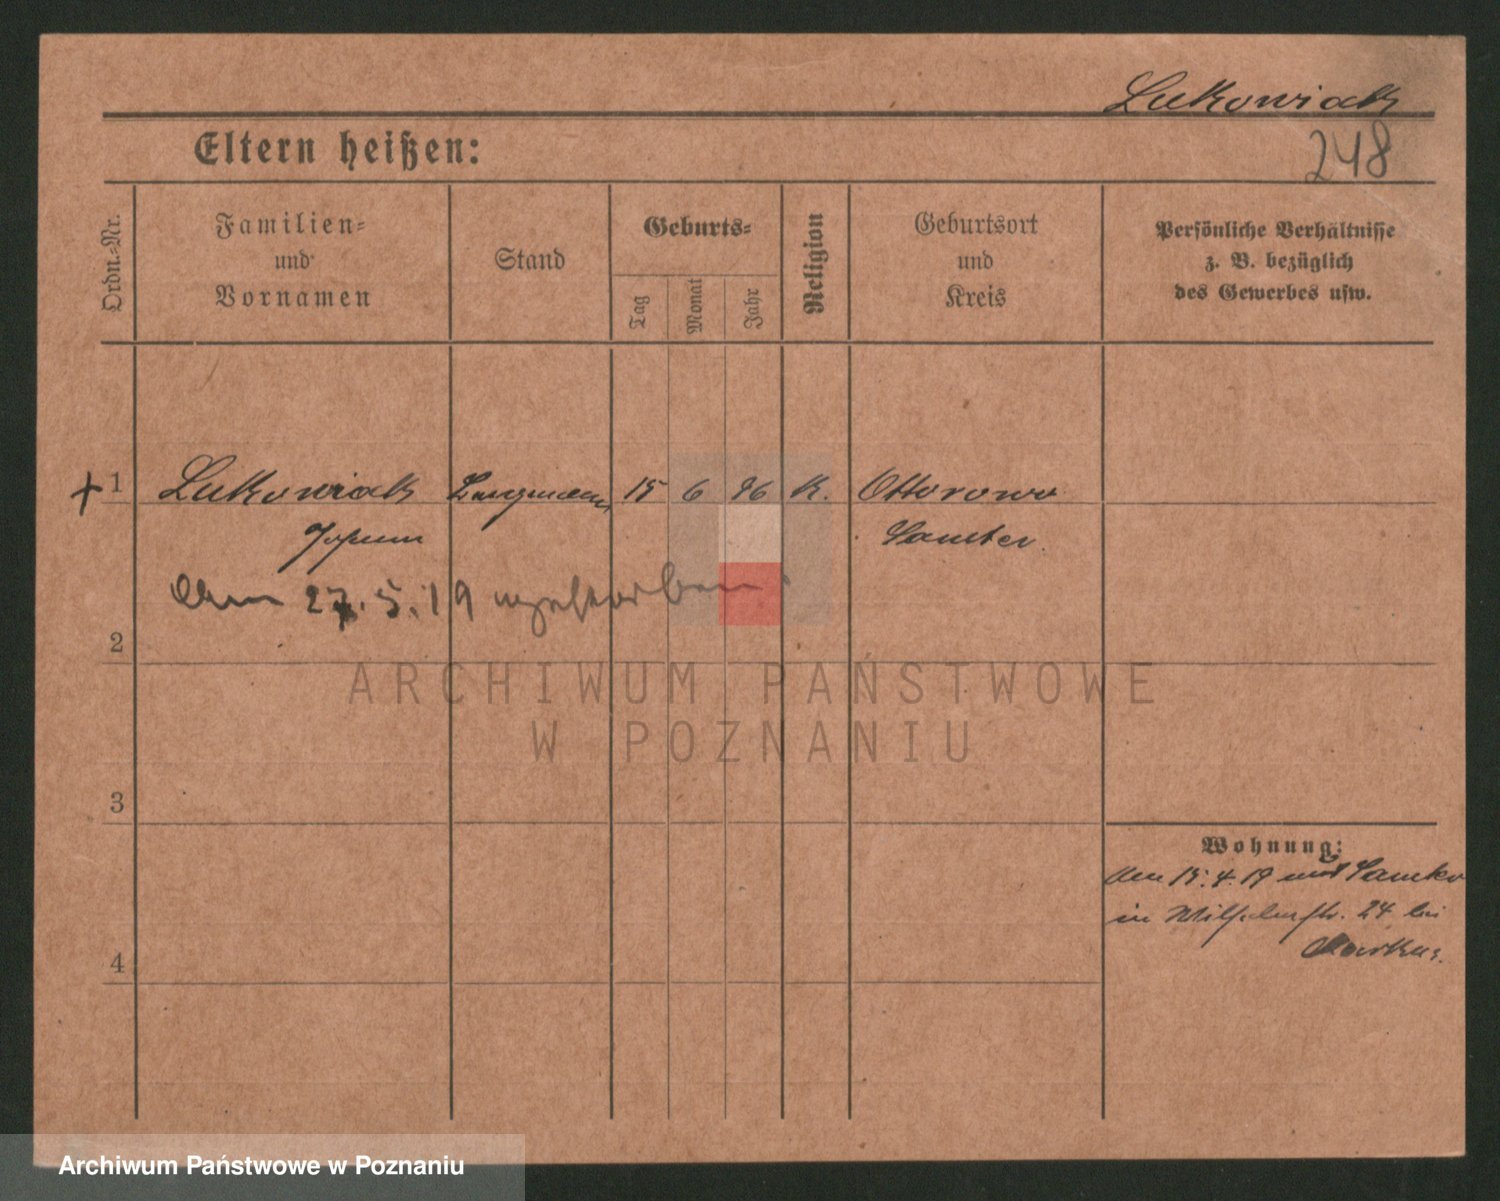 Lukowiak
248
Eltern heißen:
Ordn.-Nr.
Familien- und Vornamen
Stand
Geburts-
Tag
Monat
Jahr
Religion
Geburtsort und Kreis
Persönliche Verhältnisse
z. B. bezüglich
des Gewerbes usw.
1 Lukowiak 15 6 96 K. Ottorowo
Samter
Am 27.5.19 gestorben
2
ARCHIWUM PAŃSTWOWE
W POZNANIU
3
Wohnung:
Am 15.4.19 aus Samter
in 24 bei
4
Archiwum Państwowe w Poznaniu